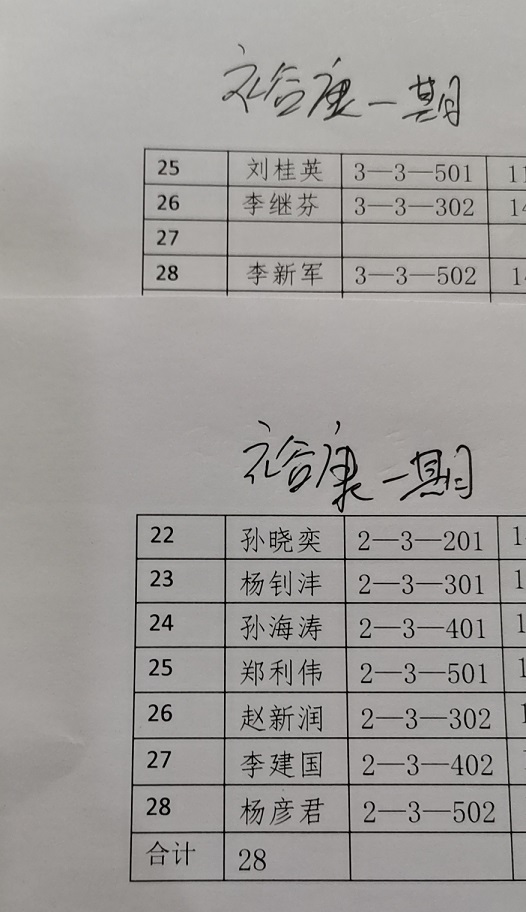 礼合康一期
25 刘桂英 3—3—501 11
26 李继芬 3—3—302 14
27
28 李新军 3—3—502 1
礼合康一期
22 孙晓奕 2—3—201 1
23 杨钊沣 2—3—301 1
24 孙海涛 2—3—401 1
25 郑利伟 2—3—501 1
26 赵新润 2—3—302 1
27 李建国 2—3—402
28 杨彦君 2—3—502
合计 28